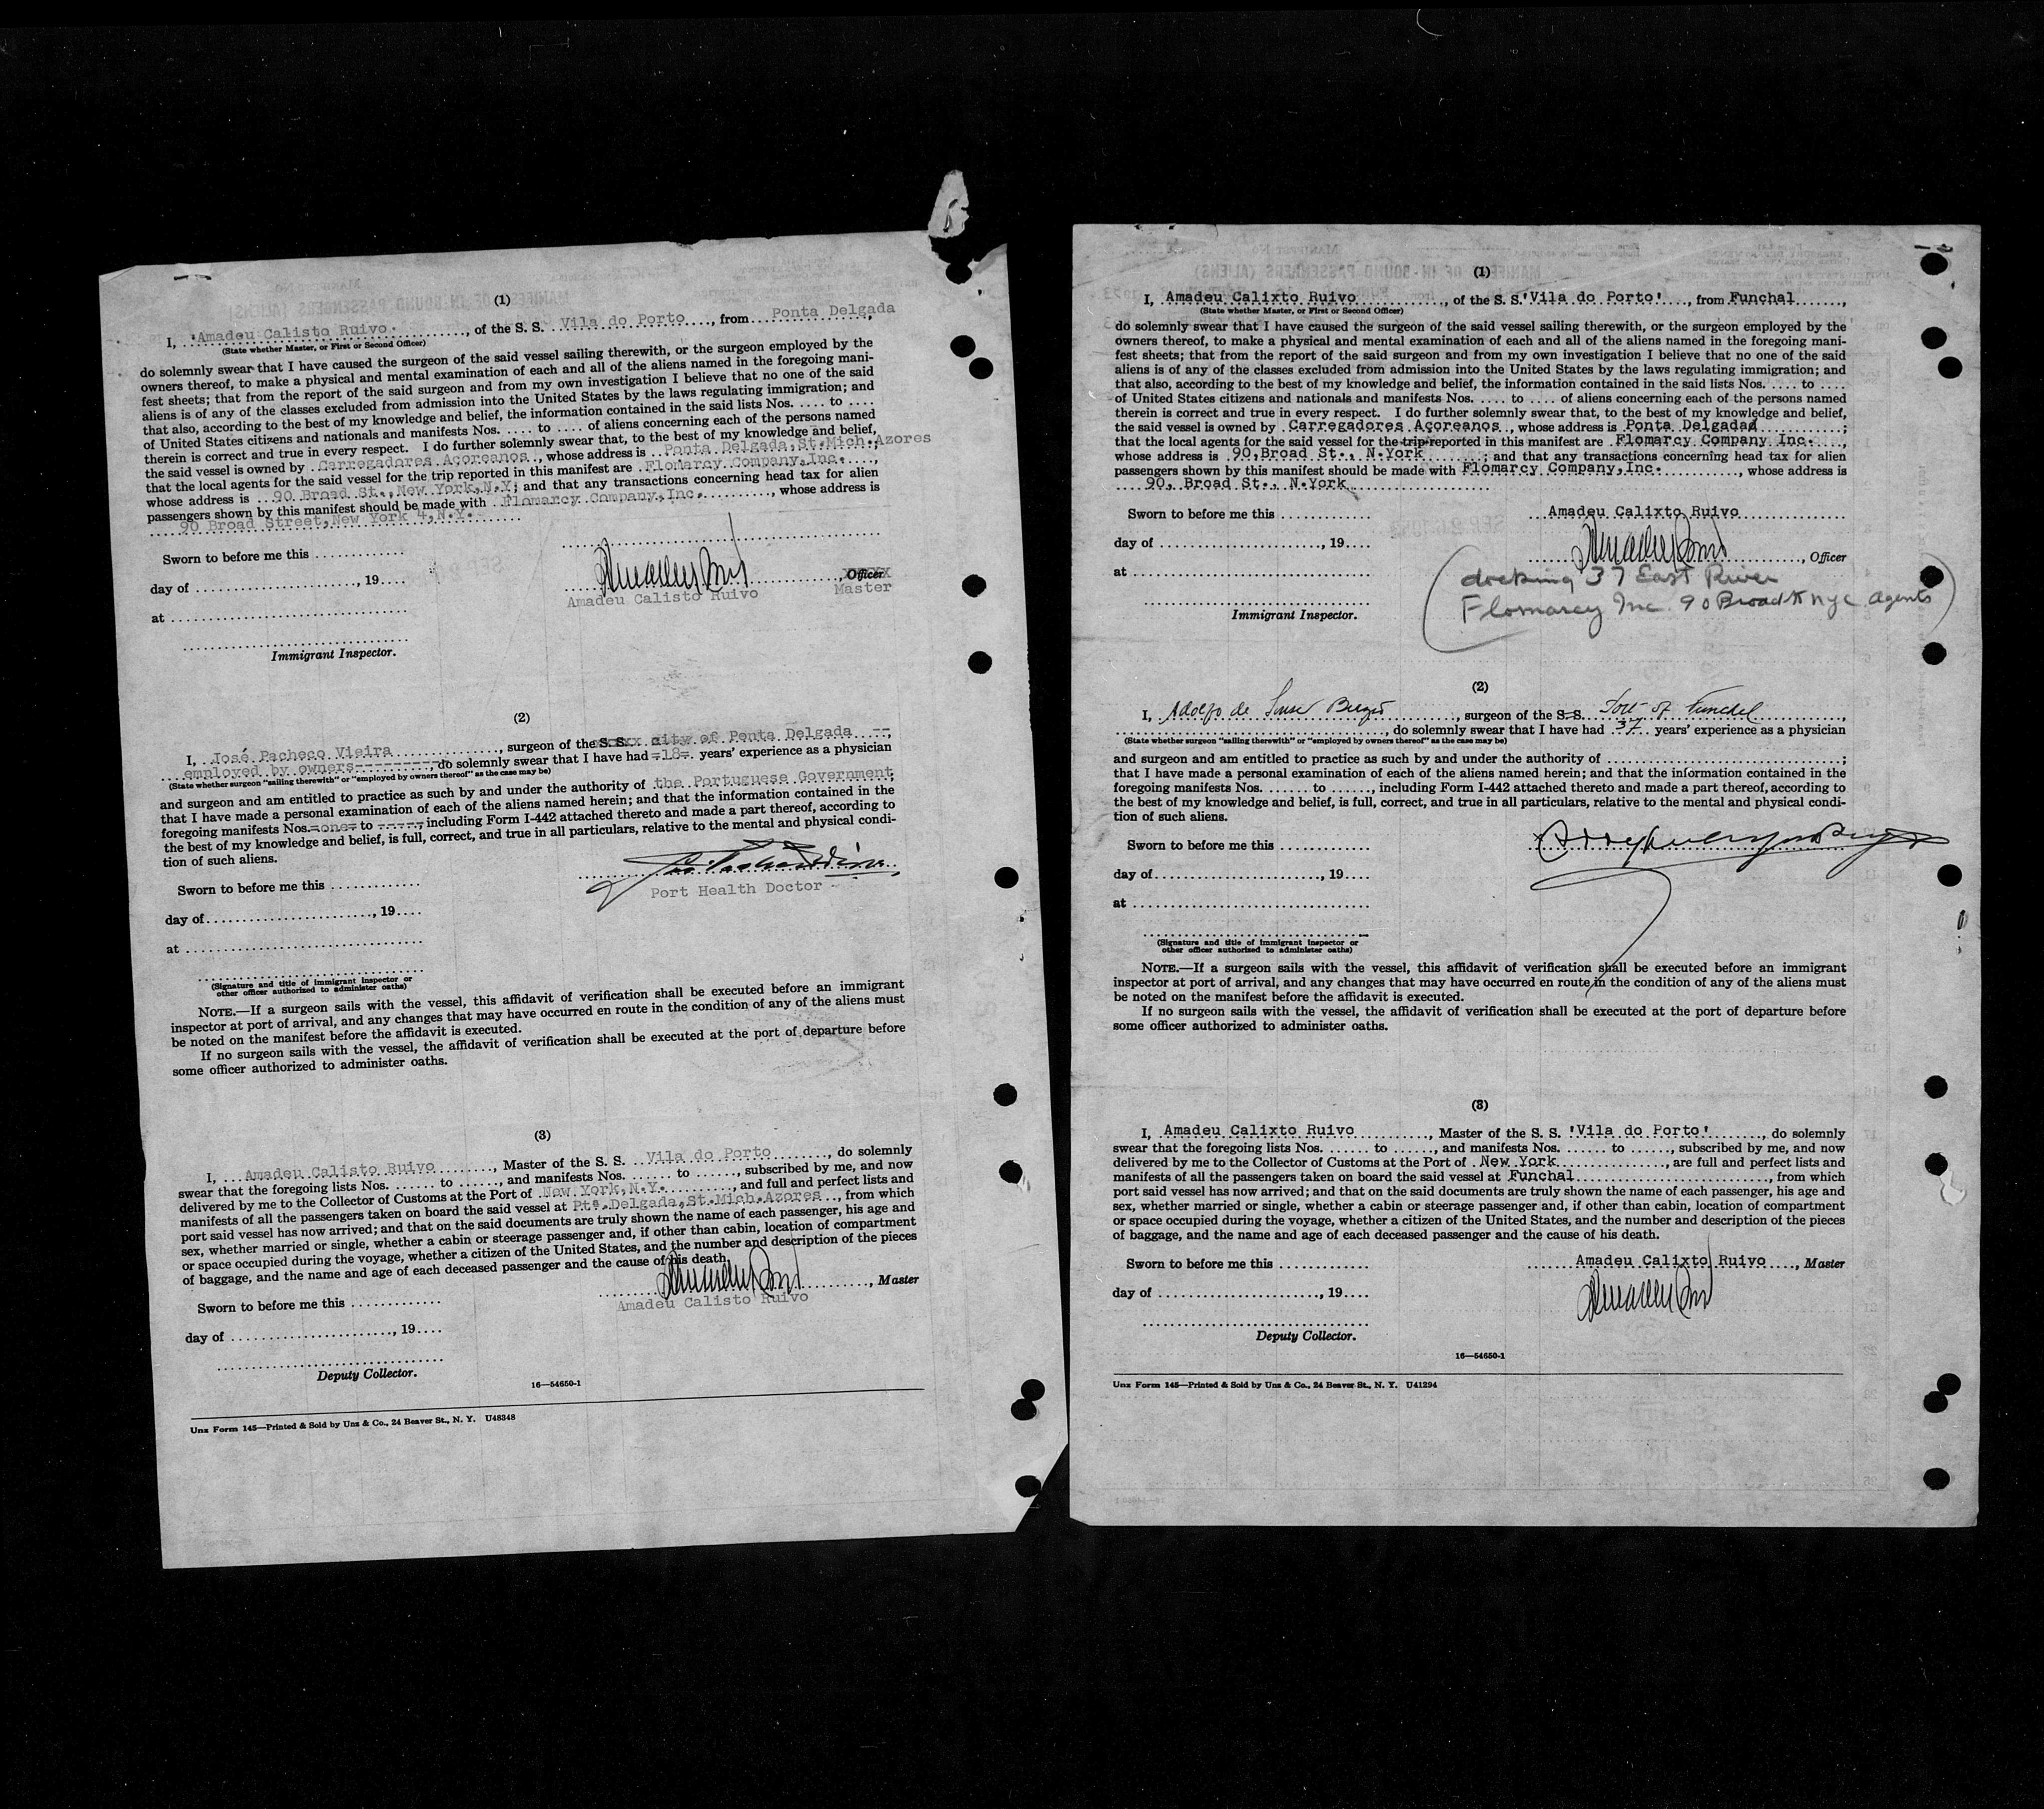 (1)
I, 'Amadeu Calisto Ruivo. , of the S. S. Vila do Porto , from Ponta Delgada ,
(State whether Master, or First or Second Officer)
do solemnly swear that I have caused the surgeon of the said vessel sailing therewith, or the surgeon employed by the
owners thereof, to make a physical and mental examination of each and all of the aliens named in the foregoing mani-
fest sheets; that from the report of the said surgeon and from my own investigation I believe that no one of the said
aliens is of any of the classes excluded from admission into the United States by the laws regulating immigration; and
that also, according to the best of my knowledge and belief, the information contained in the said lists Nos. .... to ....
of United States citizens and nationals and manifests Nos. .... to .... of aliens concerning each of the persons named
therein is correct and true in every respect. I do further solemnly swear that, to the best of my knowledge and belief,
the said vessel is owned by Carregadores Açoreanos , whose address is Ponta Delgada,St.Mich.Azores ;
that the local agents for the said vessel for the trip reported in this manifest are Flomarcy Company,Inc. ,
whose address is 90 Broad St.,New York,N.Y ; and that any transactions concerning head tax for alien
passengers shown by this manifest should be made with Flomarcy Company,Inc. , whose address is
90 Broad Street,New York 4,N.Y.
Sworn to before me this ............
day of ......................, 19.... , Officer
Amadeu Calisto Ruivo Master
at ..............................
Immigrant Inspector.
(2)
I, José Pacheco Vieira , surgeon of the S.S. xxxx city of Ponta Delgada --,
employed by owners--------- , do solemnly swear that I have had =18= years' experience as a physician
(State whether surgeon "sailing therewith" or "employed by owners thereof" as the case may be)
and surgeon and am entitled to practice as such by and under the authority of the Portuguese Government;
that I have made a personal examination of each of the aliens named herein; and that the information contained in the
foregoing manifests Nos.=one= to -----, including Form I-442 attached thereto and made a part thereof, according to
the best of my knowledge and belief, is full, correct, and true in all particulars, relative to the mental and physical condi-
tion of such aliens.
Sworn to before me this ............
Port Health Doctor
day of......................, 19....
at ..............................
(Signature and title of immigrant inspector or
other officer authorized to administer oaths)
NOTE.—If a surgeon sails with the vessel, this affidavit of verification shall be executed before an immigrant
inspector at port of arrival, and any changes that may have occurred en route in the condition of any of the aliens must
be noted on the manifest before the affidavit is executed.
If no surgeon sails with the vessel, the affidavit of verification shall be executed at the port of departure before
some officer authorized to administer oaths.
(3)
I, Amadeu Calisto Ruivo , Master of the S. S. Vila do Porto , do solemnly
swear that the foregoing lists Nos. ...... to ......, and manifests Nos. ...... to ......, subscribed by me, and now
delivered by me to the Collector of Customs at the Port of New York,N.Y. , and full and perfect lists and
manifests of all the passengers taken on board the said vessel at Ptª.Delgada,St.Mich.Azores , from which
port said vessel has now arrived; and that on the said documents are truly shown the name of each passenger, his age and
sex, whether married or single, whether a cabin or steerage passenger and, if other than cabin, location of compartment
or space occupied during the voyage, whether a citizen of the United States, and the number and description of the pieces
of baggage, and the name and age of each deceased passenger and the cause of his death.
, Master
Sworn to before me this ............ Amadeu Calisto Ruivo
day of ......................, 19....
Deputy Collector.
16—54650-1
Unz Form 145—Printed & Sold by Unz & Co., 24 Beaver St., N. Y. U48348
(1)
I, Amadeu Calixto Ruivo , of the S. S. 'Vila do Porto' , from Funchal ,
(State whether Master, or First or Second Officer)
do solemnly swear that I have caused the surgeon of the said vessel sailing therewith, or the surgeon employed by the
owners thereof, to make a physical and mental examination of each and all of the aliens named in the foregoing mani-
fest sheets; that from the report of the said surgeon and from my own investigation I believe that no one of the said
aliens is of any of the classes excluded from admission into the United States by the laws regulating immigration; and
that also, according to the best of my knowledge and belief, the information contained in the said lists Nos. .... to ....
of United States citizens and nationals and manifests Nos. .... to .... of aliens concerning each of the persons named
therein is correct and true in every respect. I do further solemnly swear that, to the best of my knowledge and belief,
the said vessel is owned by Carregadores Açoreanos , whose address is Ponta Delgada ;
that the local agents for the said vessel for the trip reported in this manifest are Flomarcy Company Inc. ,
whose address is 90,Broad St., N.York ; and that any transactions concerning head tax for alien
passengers shown by this manifest should be made with Flomarcy Company,Inc. , whose address is
90, Broad St., N.York
Sworn to before me this ............ Amadeu Calixto Ruivo
day of ......................, 19.... , Officer
at ..............................
docking 37 East River
Flomarcy Inc. 90 Broad St nyc agents
Immigrant Inspector.
(2)
I, Adolfo de Sousa , surgeon of the S.S. Port of Funchal ,
, do solemnly swear that I have had 37 years' experience as a physician
(State whether surgeon "sailing therewith" or "employed by owners thereof" as the case may be)
and surgeon and am entitled to practice as such by and under the authority of ..............................;
that I have made a personal examination of each of the aliens named herein; and that the information contained in the
foregoing manifests Nos. ...... to ......, including Form I-442 attached thereto and made a part thereof, according to
the best of my knowledge and belief, is full, correct, and true in all particulars, relative to the mental and physical condi-
tion of such aliens.
Sworn to before me this ............
day of......................, 19....
at ..............................
(Signature and title of immigrant inspector or
other officer authorized to administer oaths)
NOTE.—If a surgeon sails with the vessel, this affidavit of verification shall be executed before an immigrant
inspector at port of arrival, and any changes that may have occurred en route in the condition of any of the aliens must
be noted on the manifest before the affidavit is executed.
If no surgeon sails with the vessel, the affidavit of verification shall be executed at the port of departure before
some officer authorized to administer oaths.
(3)
I, Amadeu Calixto Ruivo , Master of the S. S. 'Vila do Porto' , do solemnly
swear that the foregoing lists Nos. ...... to ......, and manifests Nos. ...... to ......, subscribed by me, and now
delivered by me to the Collector of Customs at the Port of New York , are full and perfect lists and
manifests of all the passengers taken on board the said vessel at Funchal , from which
port said vessel has now arrived; and that on the said documents are truly shown the name of each passenger, his age and
sex, whether married or single, whether a cabin or steerage passenger and, if other than cabin, location of compartment
or space occupied during the voyage, whether a citizen of the United States, and the number and description of the pieces
of baggage, and the name and age of each deceased passenger and the cause of his death.
Sworn to before me this ............ Amadeu Calixto Ruivo , Master
day of ......................, 19....
Deputy Collector.
16—54650-1
Unz Form 145—Printed & Sold by Unz & Co., 24 Beaver St., N. Y. U41294